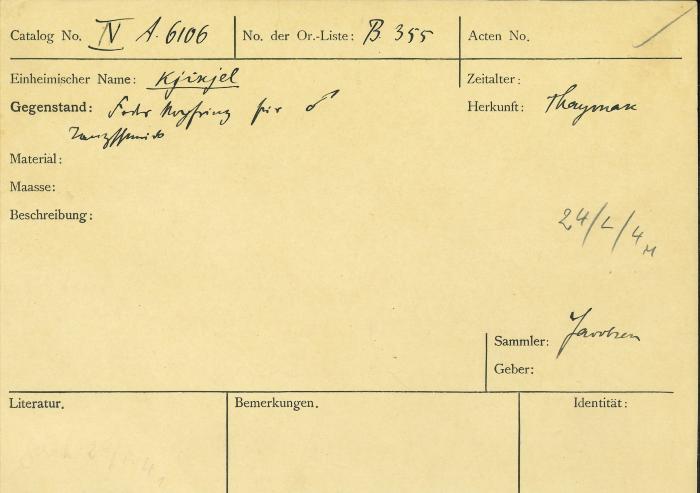 Catalog No. IV A. 6106 No. der Or.-Liste: B 355 Acten No.
Einheimischer Name: Kjikjel Zeitalter:
Gegenstand: Feder Kopfring für ♂ Herkunft:
Tanzschmuck
Material:
Maasse:
Beschreibung:
24/L/4
Sammler: Jacobsen
Geber:
Literatur. Bemerkungen. Identität: